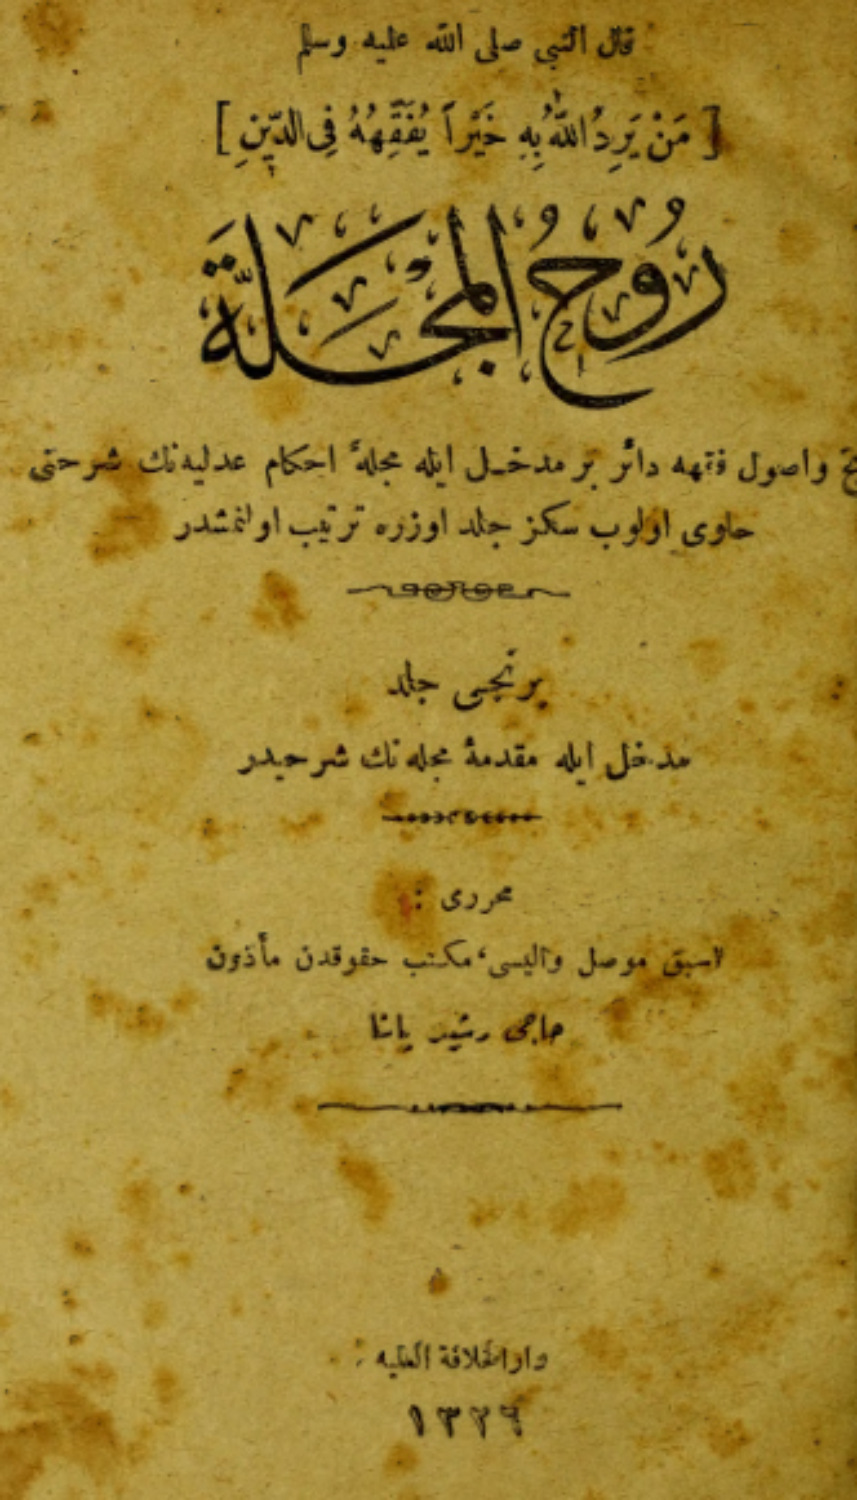 قال النبي صلى الله عليه وسلم
[ مَنْ يَرِدُ اللهُ بِهِ خَيْراً يُفَقِّهْهُ فِى الدِّينِ ]
رُوحُ الْمَجَلَّة
واصول فقهه دائر بر مدخل ايله مجلهٔ احكام عدليه‌نك شرحنى
حاوى اولوب سكز جلد اوزره ترتيب اولنمشدر
برنجى جلد
مدخل ايله مقدمهٔ مجله نك شرحيدر
محررى :
اسبق موصل واليسى، مكتب حقوقدن مأذون
حاجى رشيد پاشا
دار الخلافة العليه
١٣٢٦